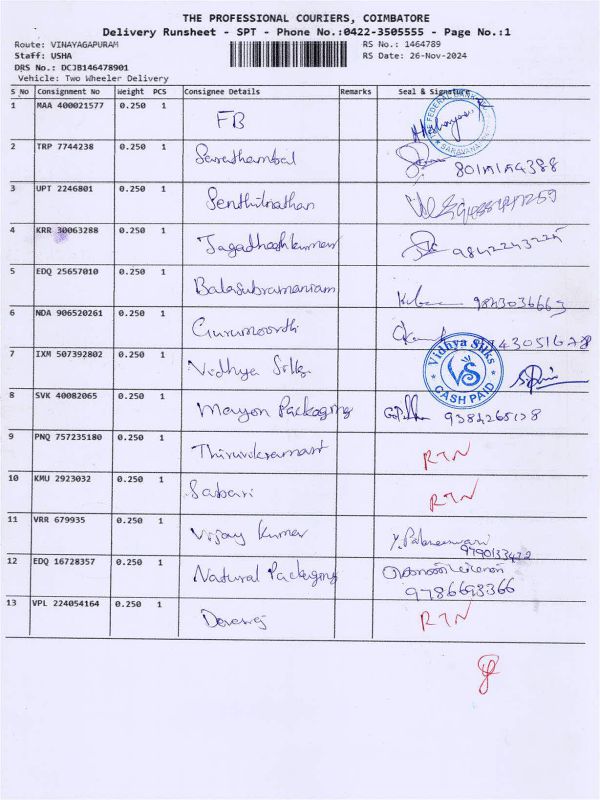 THE PROFESSIONAL COURIERS, COIMBATORE
Delivery Runsheet - SPT - Phone No.:0422-3505555 - Page No.:1
Route: VINAYAGAPURAM RS No.: 1464789
Staff: USHA RS Date: 26-Nov-2024
DRS No.: DCJB146478901
Vehicle: Two Wheeler Delivery
S No Consignment No Weight PCS Consignee Details Remarks Seal & Signature
1 MAA 400021577 0.250 1 FB FEDERAL BANK
2 TRP 7744238 0.250 1 Sarathambal
3 UPT 2246801 0.250 1 Senthilnathan
4 KRR 30063288 0.250 1 Jagadheshkumar 9842243225
5 EDQ 25657010 0.250 1 Balasubramaniam 9843036663
6 NDA 906520261 0.250 1 Gurumoorthi
7 IXM 507392802 0.250 1 Vidhya Silks Vidhya Silks VS CASH PAID
8 SVK 40082065 0.250 1 Mayon Packaging
9 PNQ 757235180 0.250 1 RTN
10 KMU 2923032 0.250 1 Sabari RTN
11 VRR 679935 0.250 1 Vijay Kumar 9790133422
12 EDQ 16728357 0.250 1 Natural Packaging
9786693366
13 VPL 224054164 0.250 1 Devaraj RTN